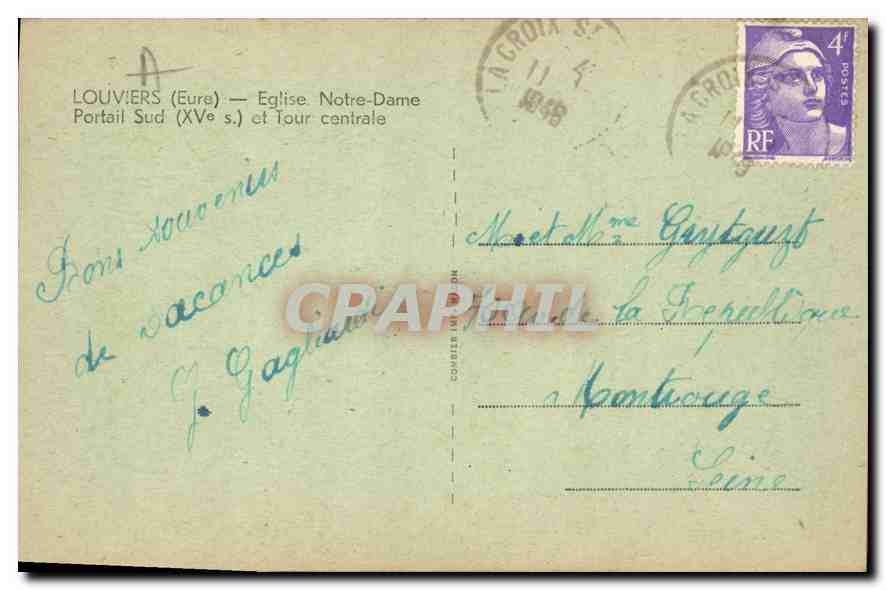 LOUVIERS (Eure) — Eglise Notre-Dame
Portail Sud (XVe s.) et Tour centrale
Bons souvenirs
de vacances
J. Gagliardi
LA CROIX S
11 4
1949
LA CROIX
4F
POSTES
RF
COMBIER IMP MACON
CRAPHIL
M. et Mme
de la République
Montrouge
Seine